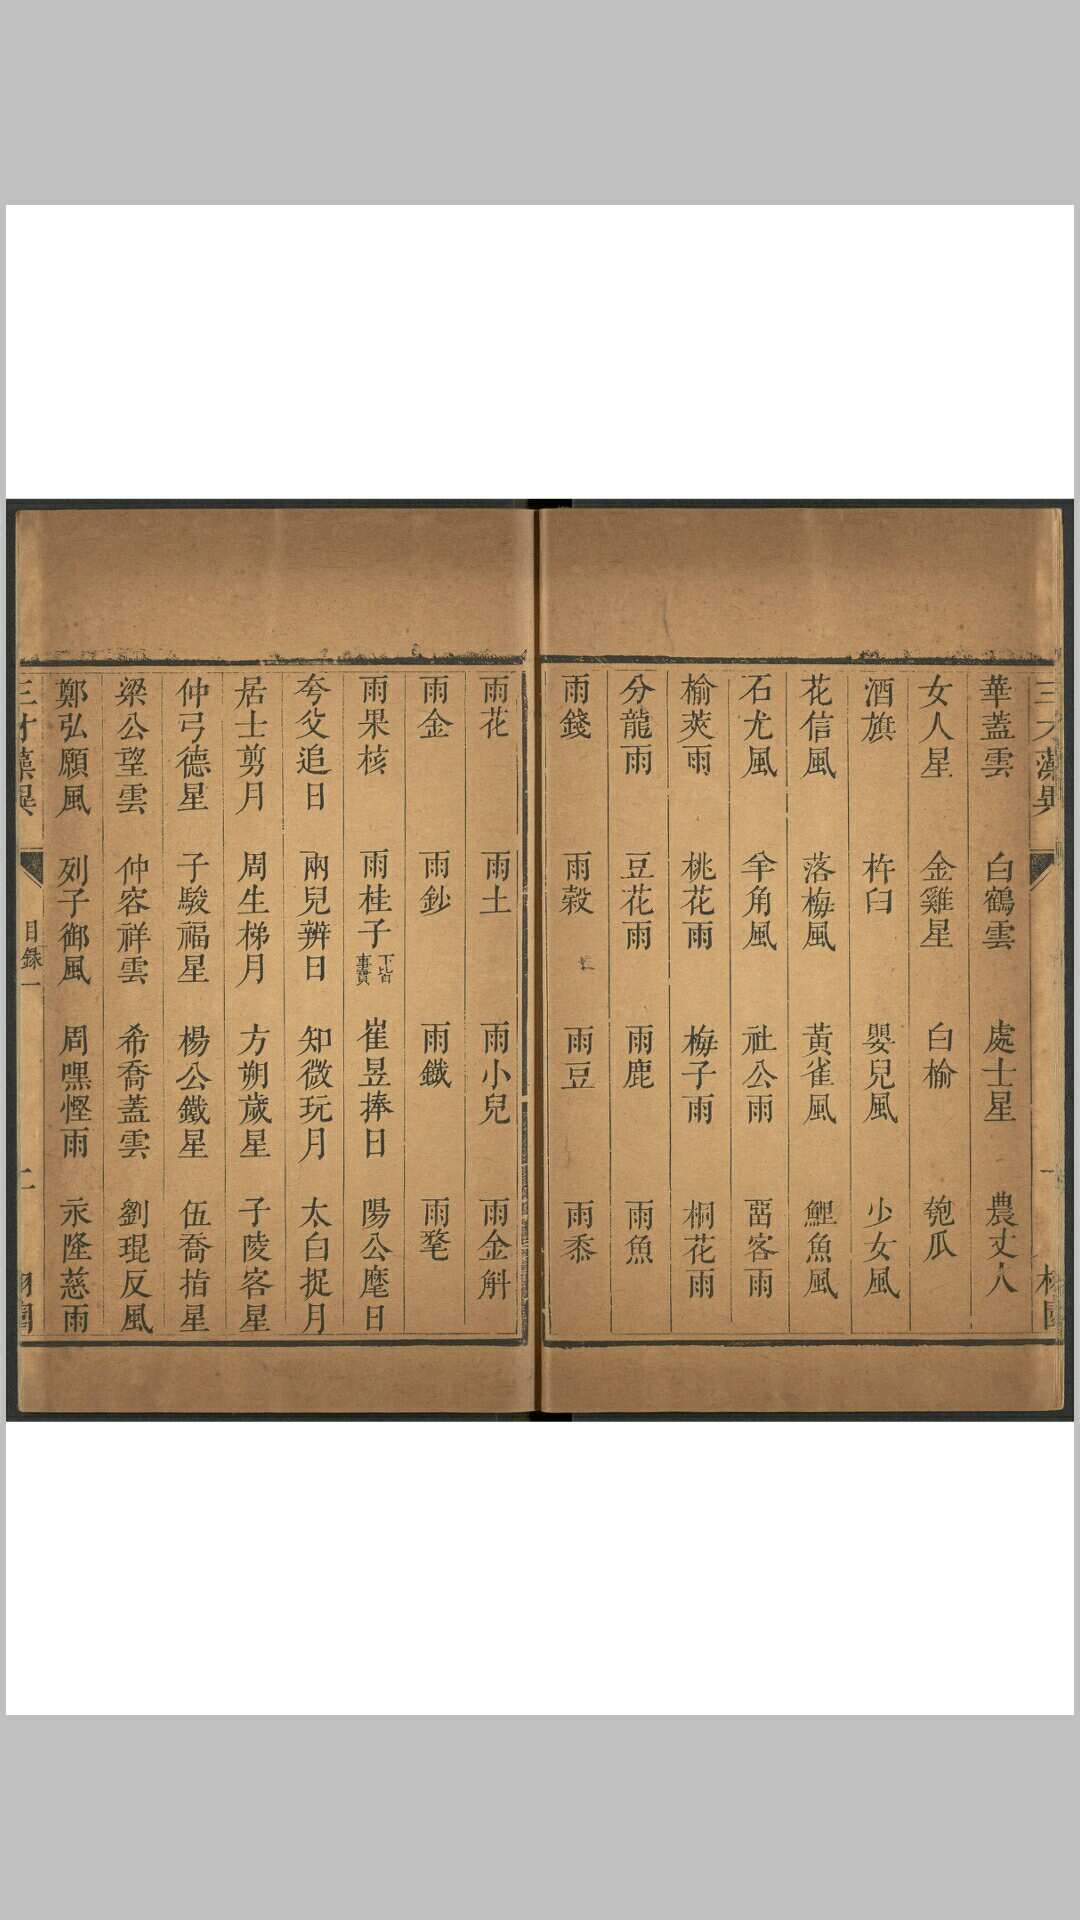 華蓋雲　白鶴雲　處士星　農丈人
女人星　金雞星　白榆　匏瓜
酒旗　杵臼　嬰兒風　少女風
花信風　落梅風　黃雀風　鯉魚風
石尤風　羊角風　社公雨　畱客雨
榆莢雨　桃花雨　梅子雨　桐花雨
分龍雨　豆花雨　雨鹿　雨魚
雨錢　雨穀　雨豆　雨黍
雨花　雨土　雨小兒　雨金斛
雨金　雨鈔　雨鐵　雨氂
雨果核　雨桂子下皆事實　崔昱捧日　陽公麾日
夸父追日　兩兒辨日　知微玩月　太白捉月
居士剪月　周生梯月　方朔歲星　子陵客星
仲弓德星　子駿福星　楊公鐵星　伍喬指星
梁公望雲　仲容祥雲　希喬蓋雲　劉琨反風
鄭弘願風　列子御風　周嘿慳雨　永隆慈雨
三才藻異　目錄一　二